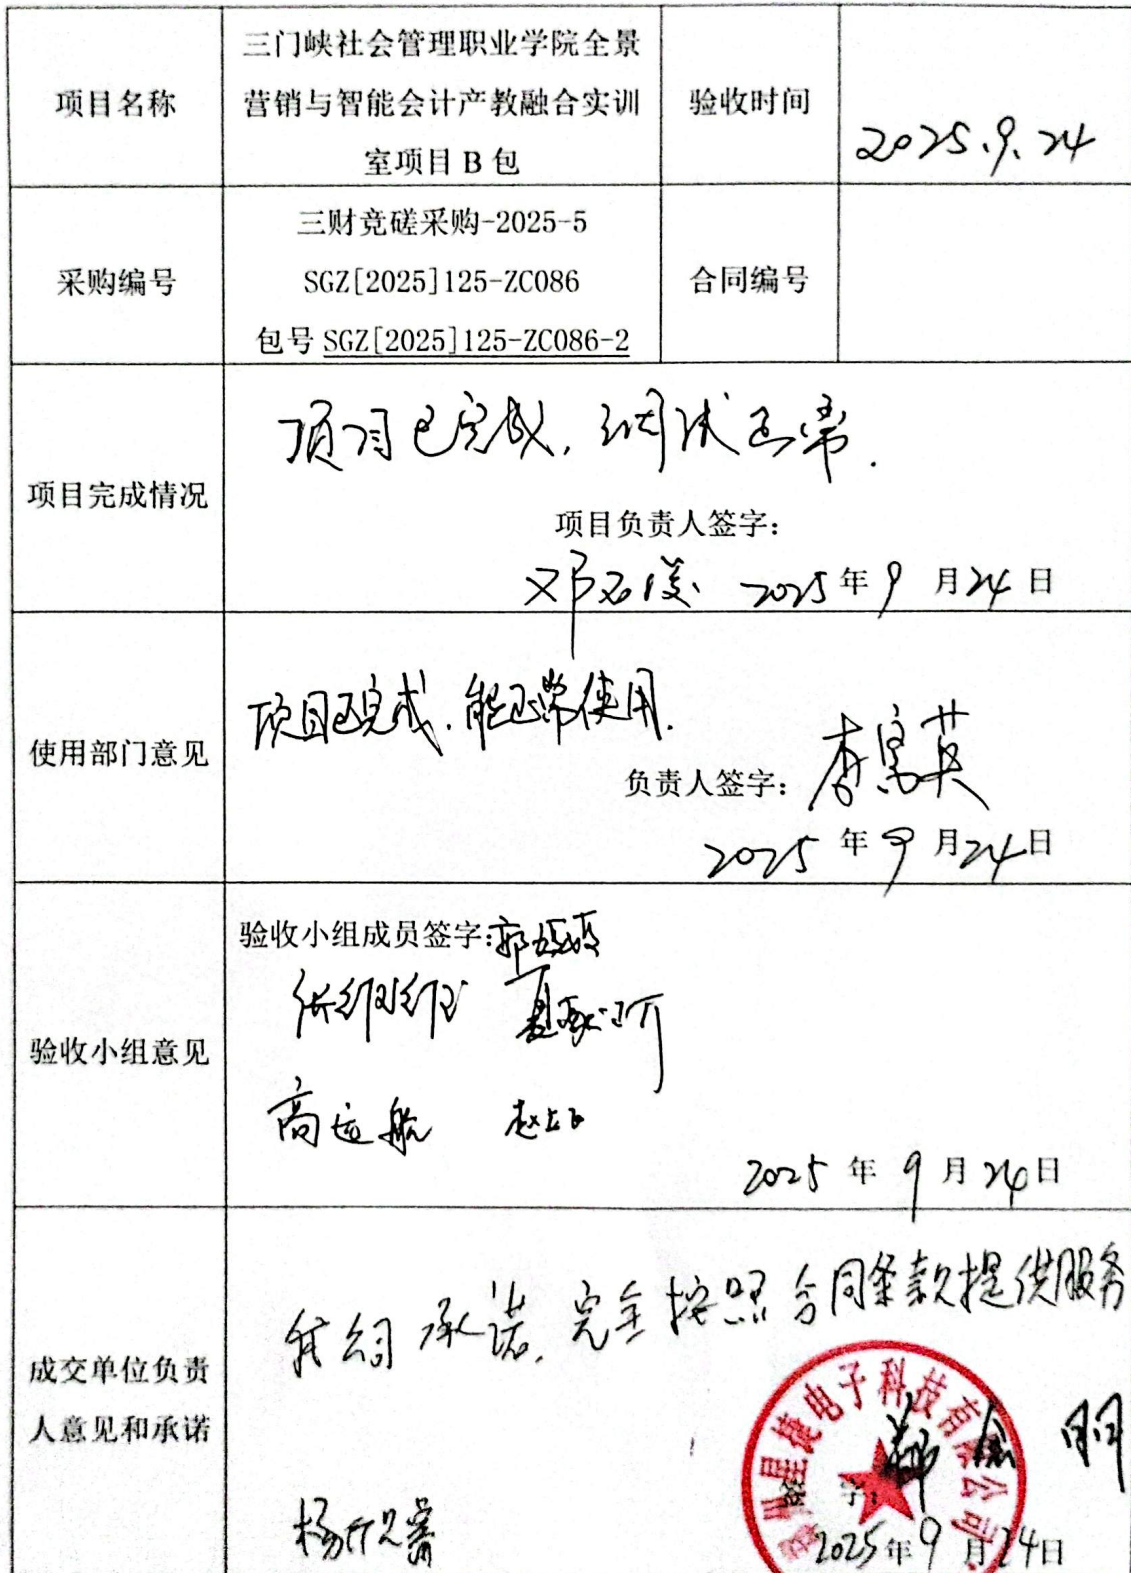 项目名称
三门峡社会管理职业学院全景
营销与智能会计产教融合实训
室项目 B 包
验收时间
2025.9.24
采购编号
三财竞磋采购-2025-5
SGZ[2025]125-ZC086
包号 SGZ[2025]125-ZC086-2
合同编号
项目完成情况
项目已完成,调试正常.
项目负责人签字:
2025年9月24日
使用部门意见
项目已完成.能正常使用.
负责人签字:
2025年9月24日
验收小组意见
验收小组成员签字:
高远航
2025年9月24日
成交单位负责
人意见和承诺
我公司承诺,完全按照合同条款提供服务
星捷电子科技有限公司
签 字:
2025年9月24日